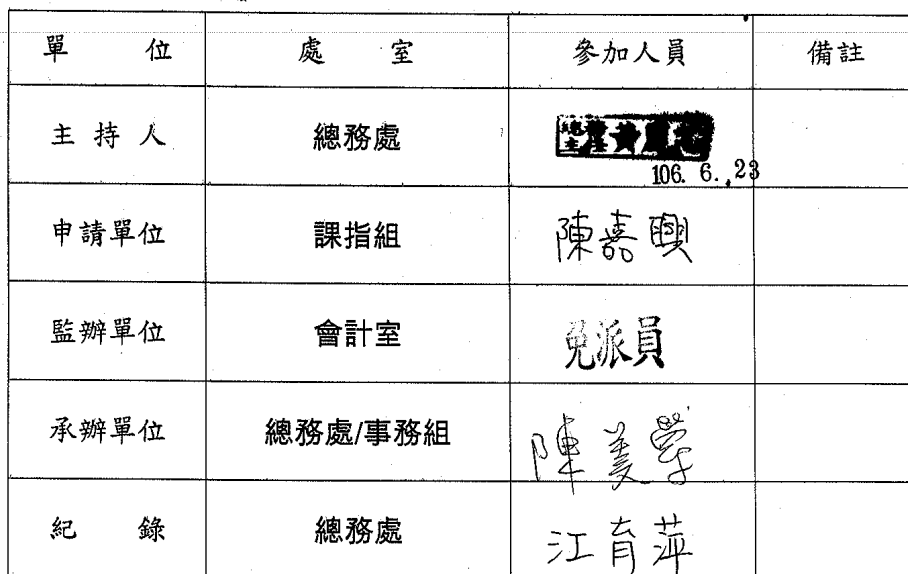 單 位 處 室 參加人員 備註
主 持 人 總務處
106. 6. 23
申請單位 課指組 陳嘉興
監辦單位 會計室 免派員
承辦單位 總務處/事務組 陳美學
紀 錄 總務處 江育萍